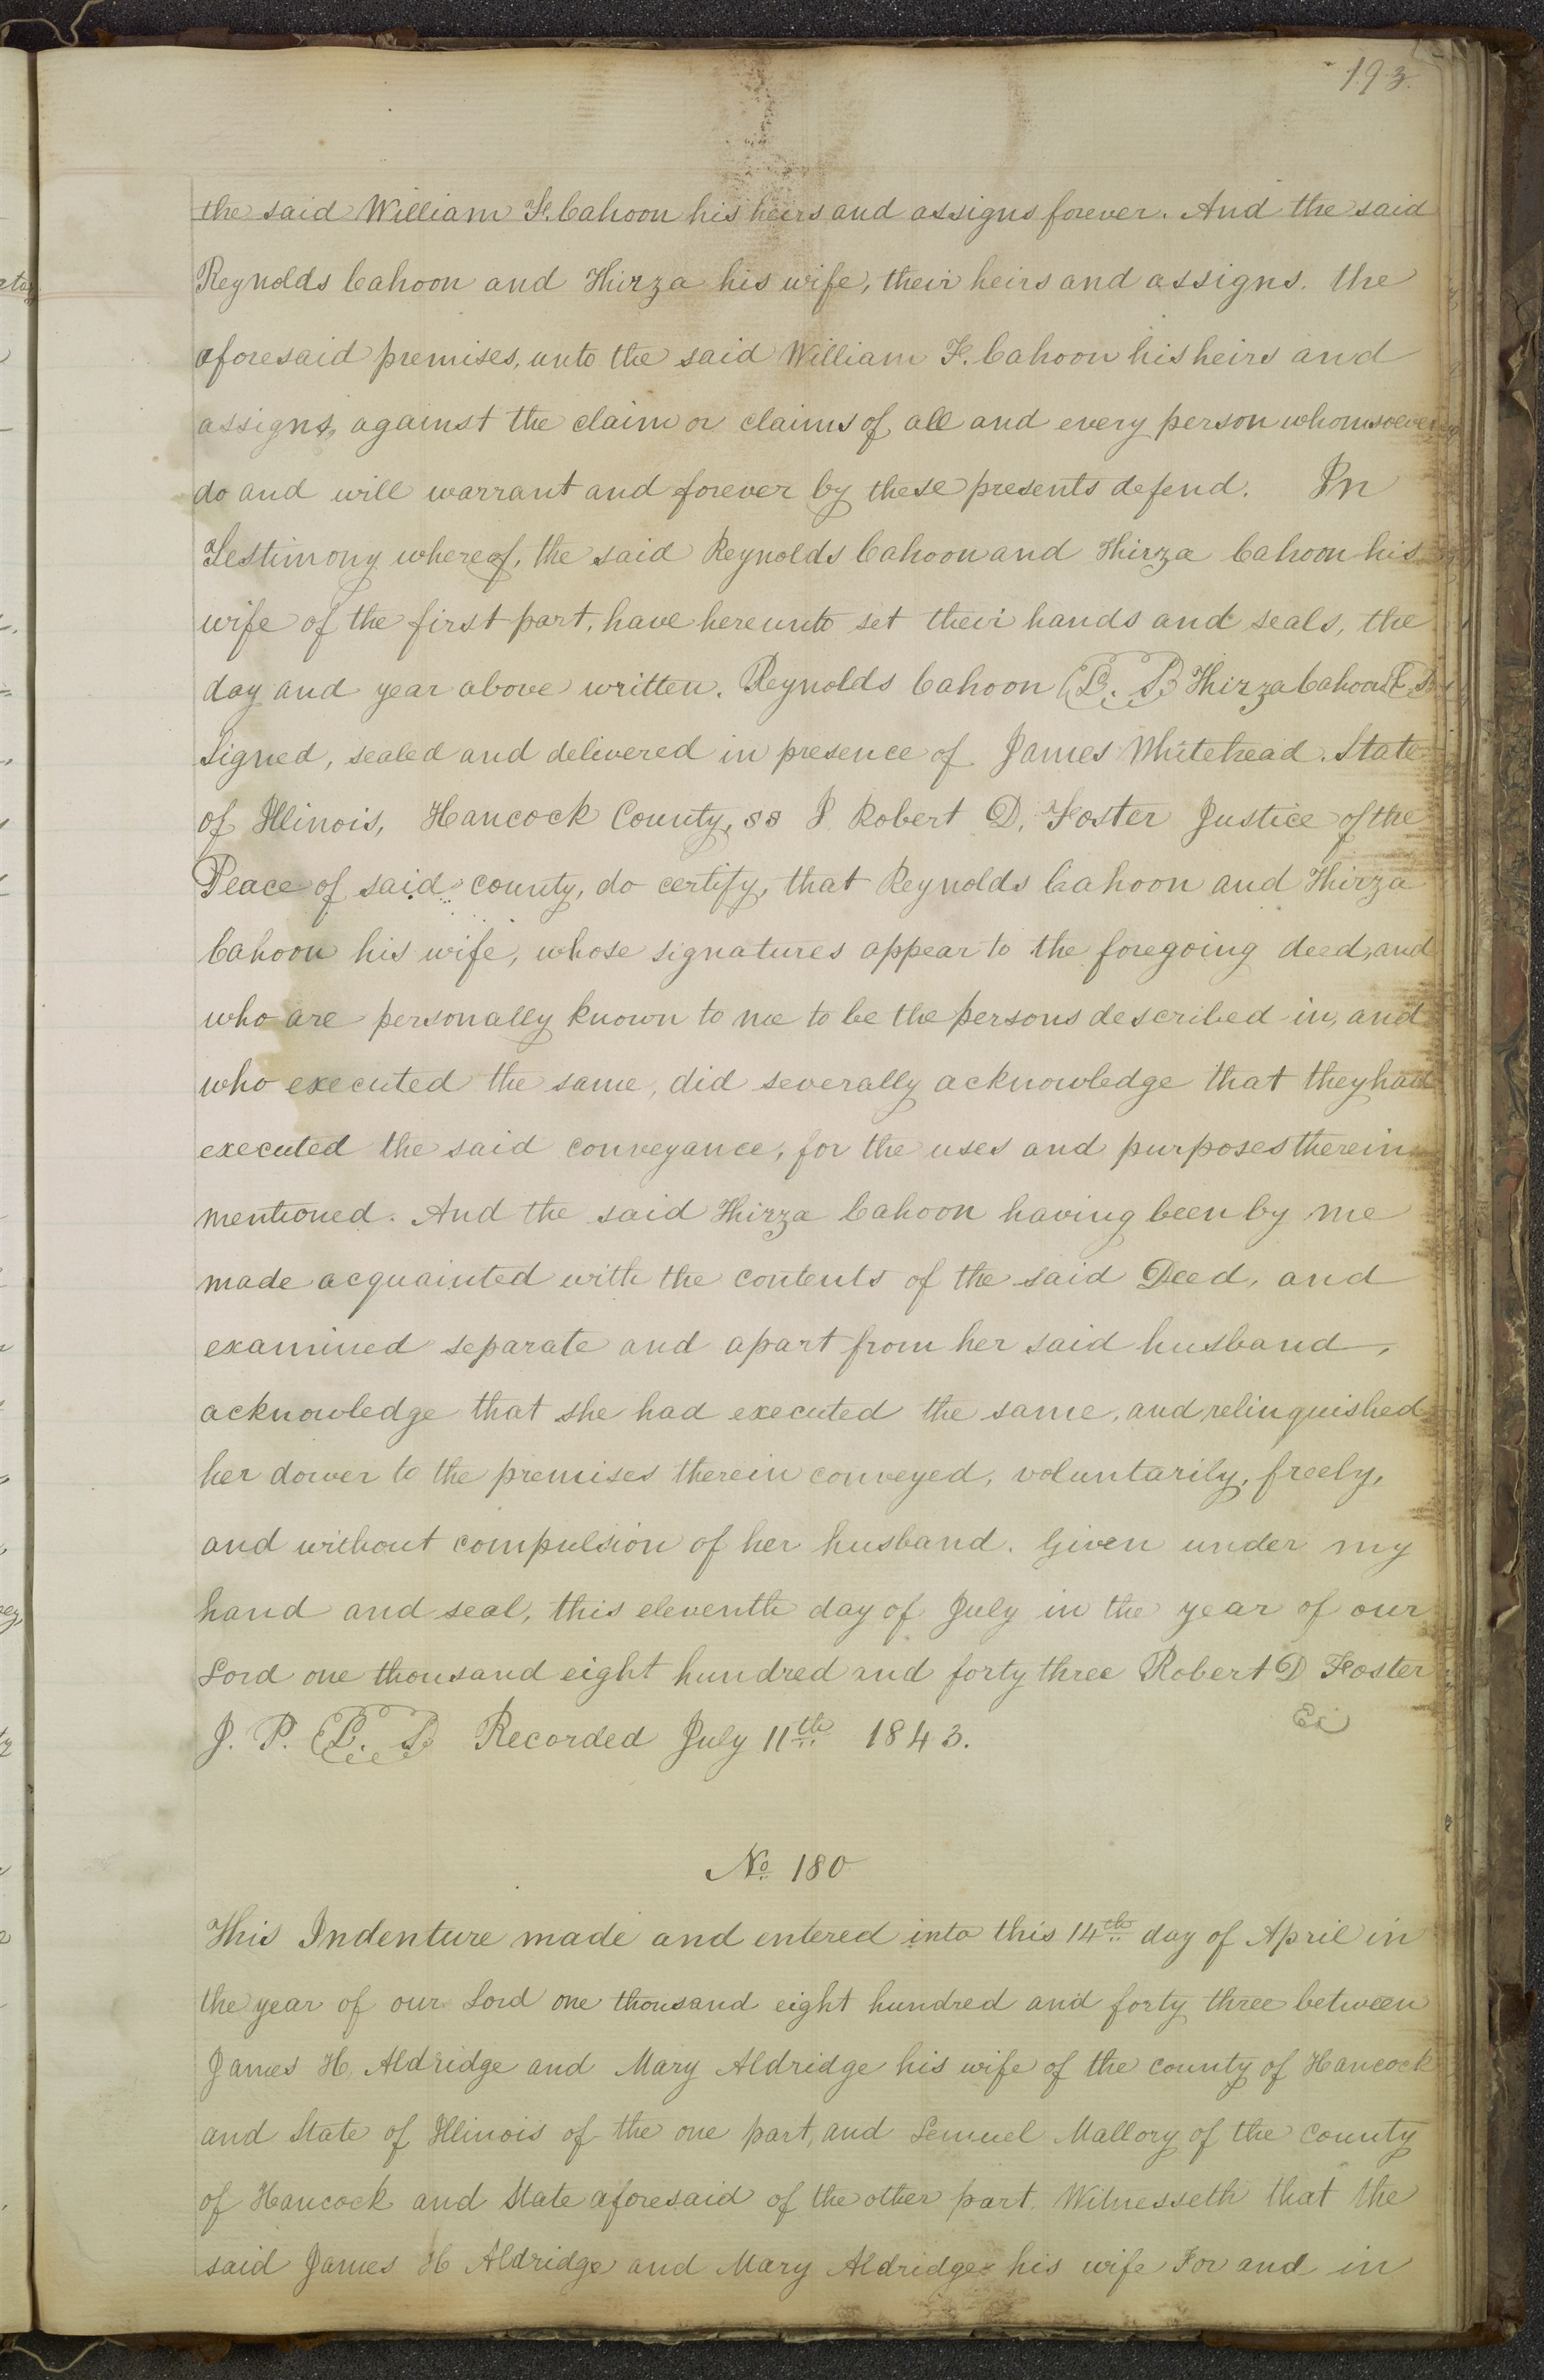 193.
the said William F. Cahoon his heirs and assigns forever. And the said
Reynolds Cahoon and Thirza his wife, their heirs and assigns. the
aforesaid premises, unto the said William F. Cahoon his heirs and
assigns, against the claim or claims of all and every person whomsoever
do and will warrant and forever by these presents defend. In
Testimony whereof, the said Reynolds Cahoon and Thirza Cahoon his
wife of the first part, have hereunto set their hands and seals, the
day and year above written. Reynolds Cahoon L. S. Thirza Cahoon L. S.
Signed, sealed and delivered in presence of James Whitehead. State
of Illinois, Hancock County, ss I Robert D. Foster Justice of the
Peace of said county, do certify, that Reynolds Cahoon and Thirza
Cahoon his wife, whose signatures appear to the foregoing deed, and
who are personally known to me to be the persons described in, and
who executed the same, did severally acknowledge that they had
executed the said conveyance, for the uses and purposes therein
mentioned. And the said Thirza Cahoon having been by me
made acquainted with the contents of the said Deed, and
examined separate and apart from her said husband,
acknowledge that she had executed the same, and relinquished
her dower to the premises therein conveyed, voluntarily, freely,
and without compulsion of her husband. Given under my
hand and seal, this eleventh day of July in the year of our
Lord one thousand eight hundred and forty three Robert D Foster
J. P. L. S. Recorded July 11th 1843.
No 180
This Indenture made and entered into this 14th day of April in
the year of our Lord one thousand eight hundred and forty three between
James H. Aldridge and Mary Aldridge his wife of the county of Hancock
and State of Illinois of the one part, and Lemuel Mallory of the County
of Hancock and State aforesaid of the other part. Witnesseth that the
said James H Aldridge and Mary Aldridge his wife For and in